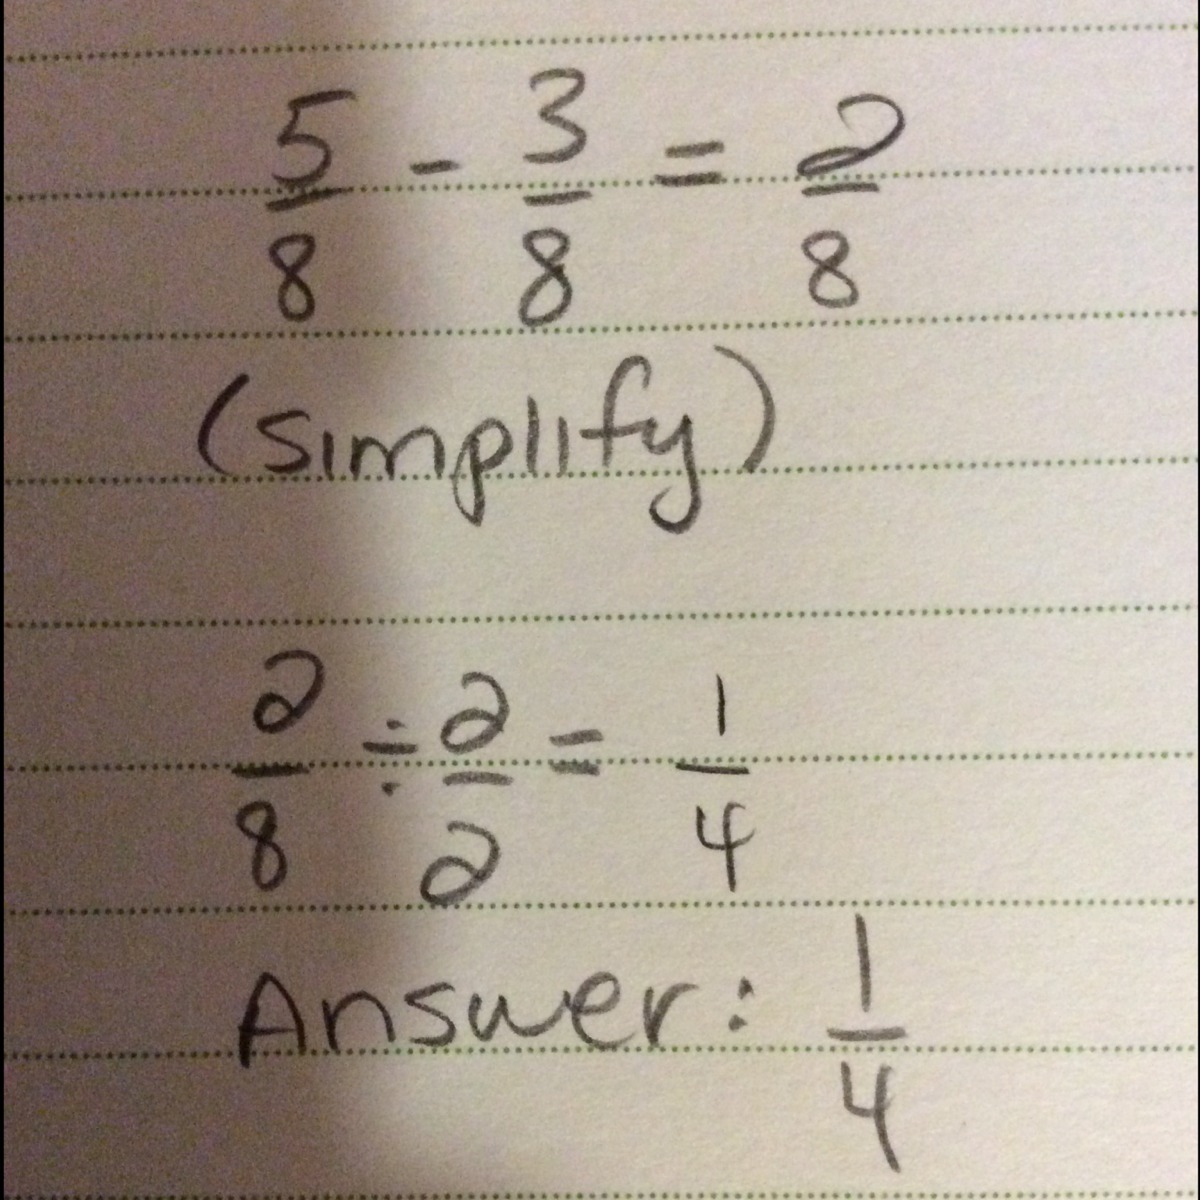 5/8 - 3/8 = 2/8
(simplify)
2/8 ÷ 2/2 = 1/4
Answer: 1/4